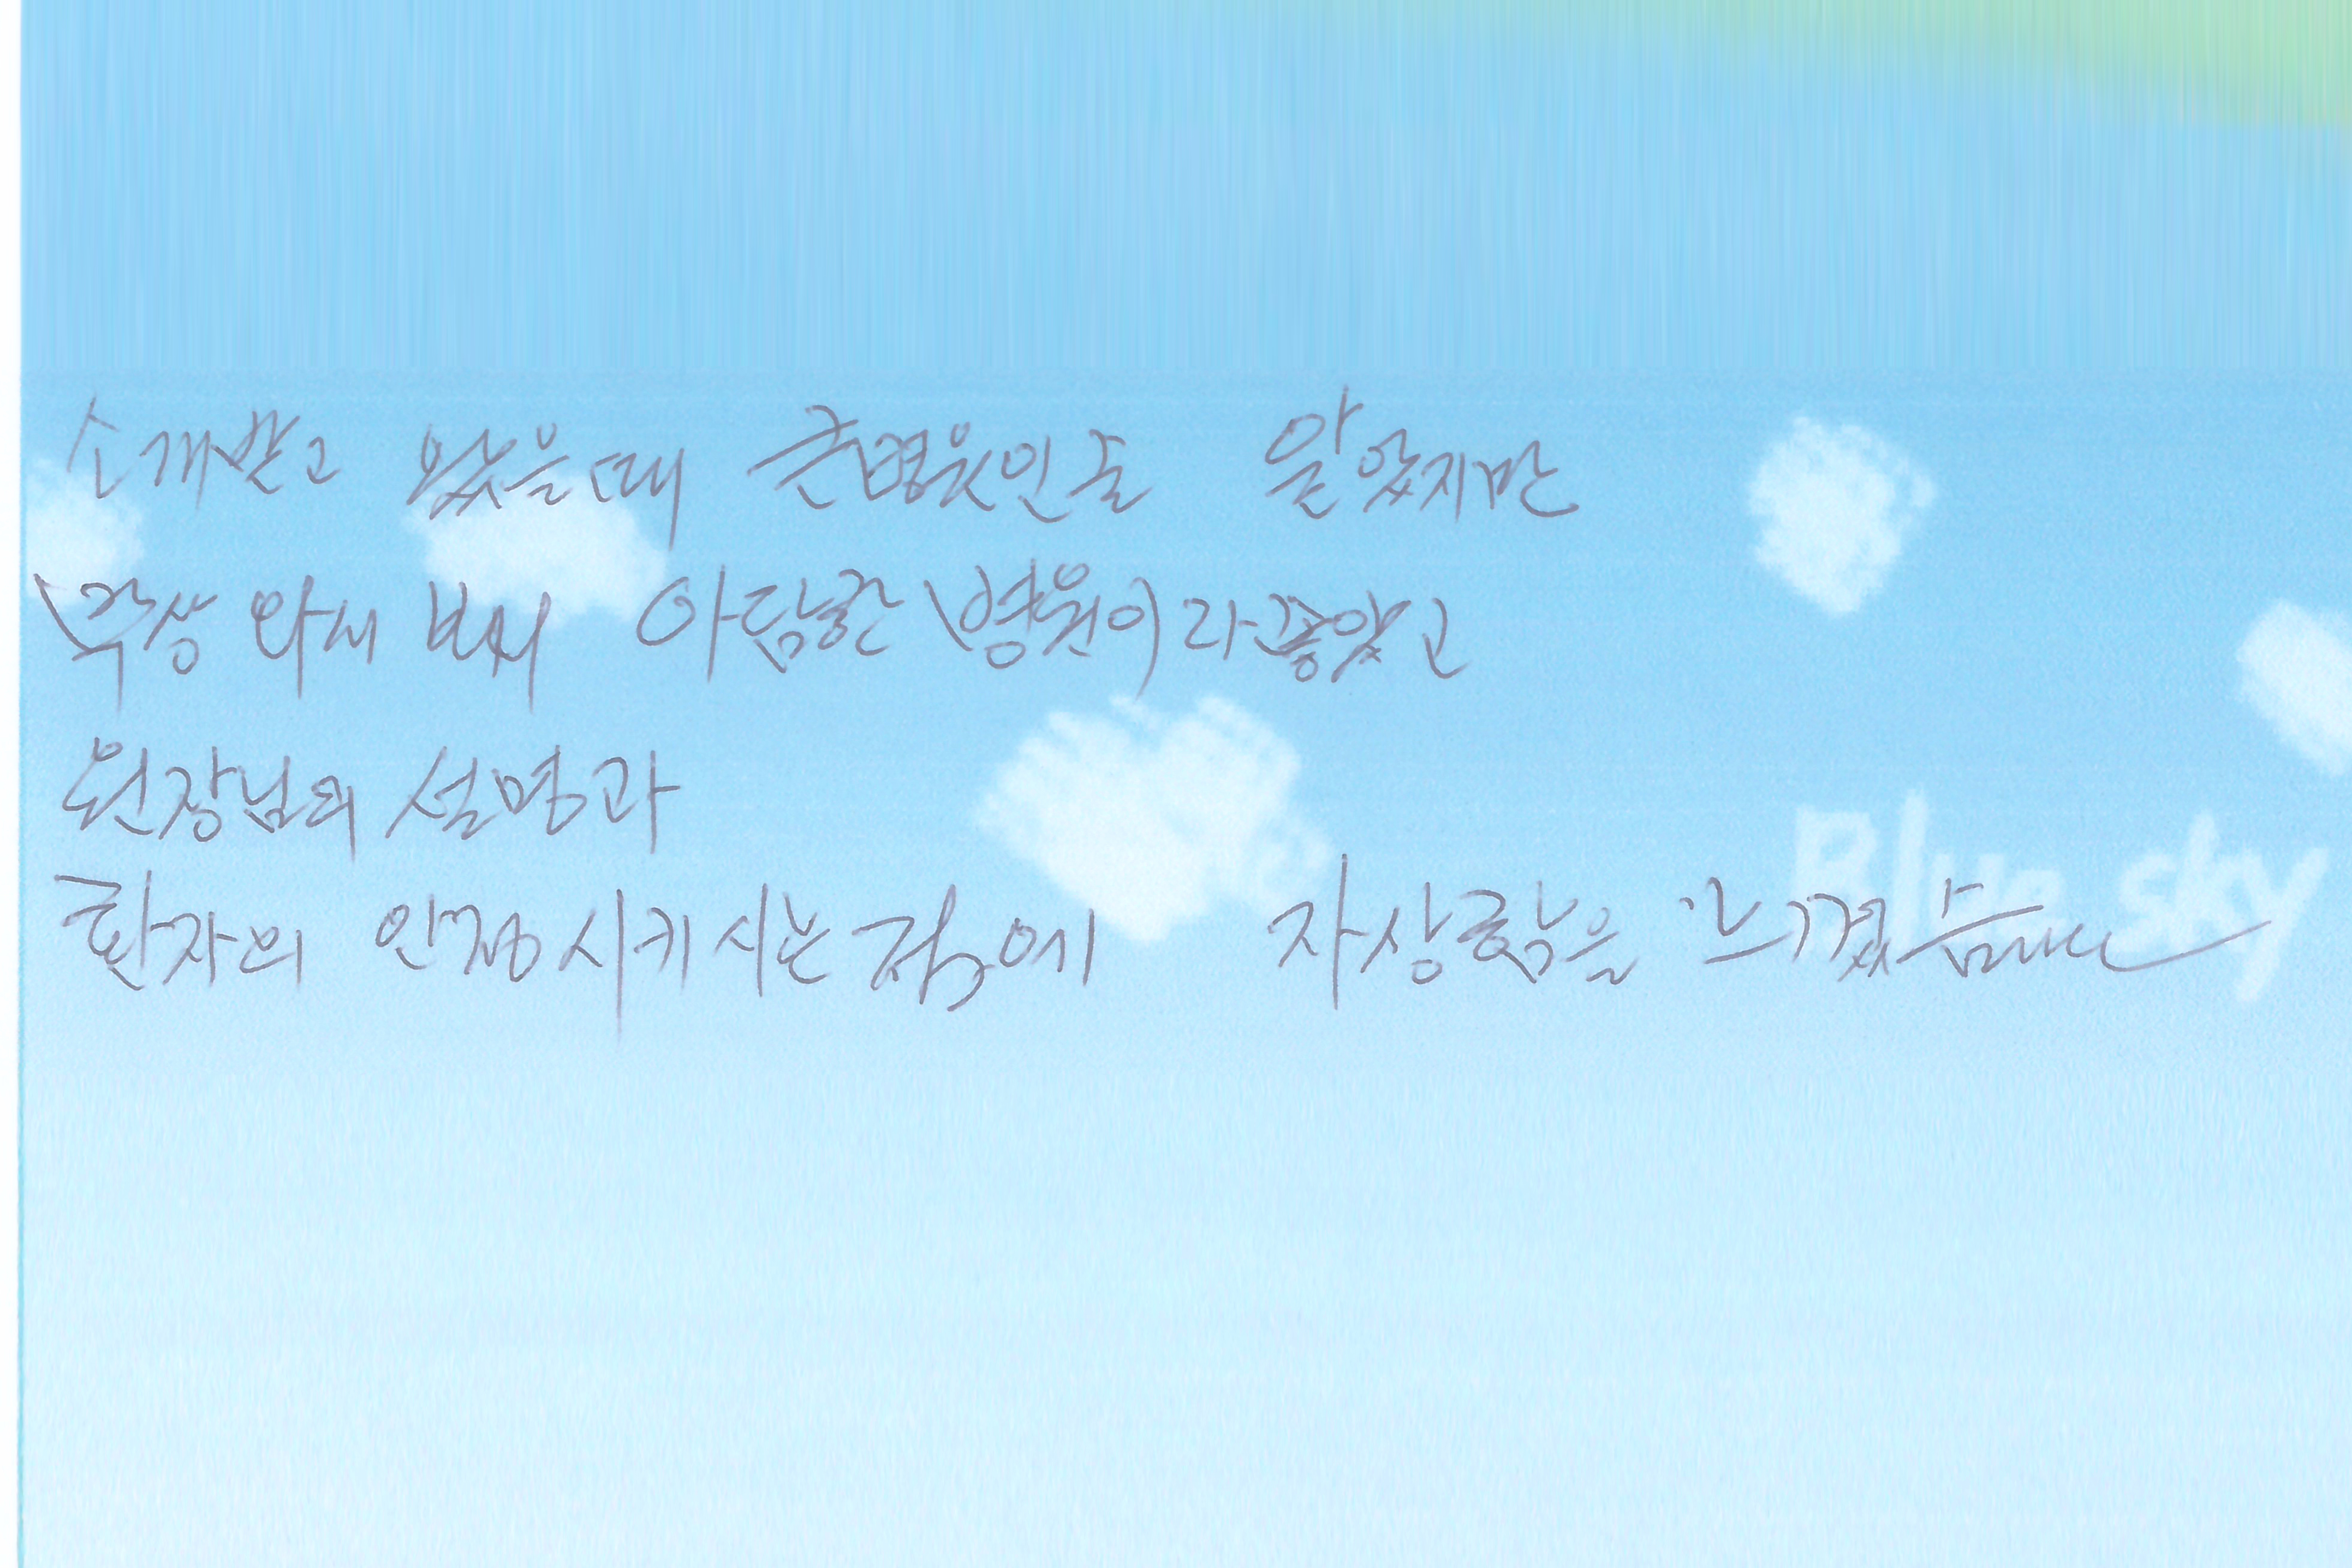 소개받고 왔을때 큰병원인줄 알았지만
막상 와서 보니 아담한 병원이라 좋았고
원장님의 설명과
Blue sky
환자의 안정시키시는 점에 자상함을 느꼈습니다